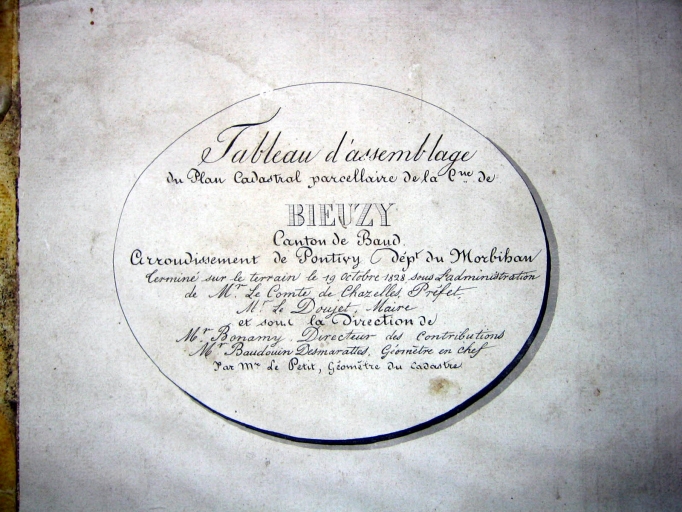 Tableau d'assemblage
du Plan Cadastral parcellaire de la Cne de
BIEUZY
Canton de Baud
Arroudissement de Pontivy dépt du Morbihan
Terminé sur le terrain le 19 Octobre 1828 sous L'administration
de Mr Le Comte de Chazelles, Préfet,
Mr Le Doujet, Maire
et sous la Direction de
Mr Bonamy, Directeur des Contributions
Mr Baudouin Desmarattes, Géomètre en chef
Par Mr Le Petit, Géomètre du Cadastre